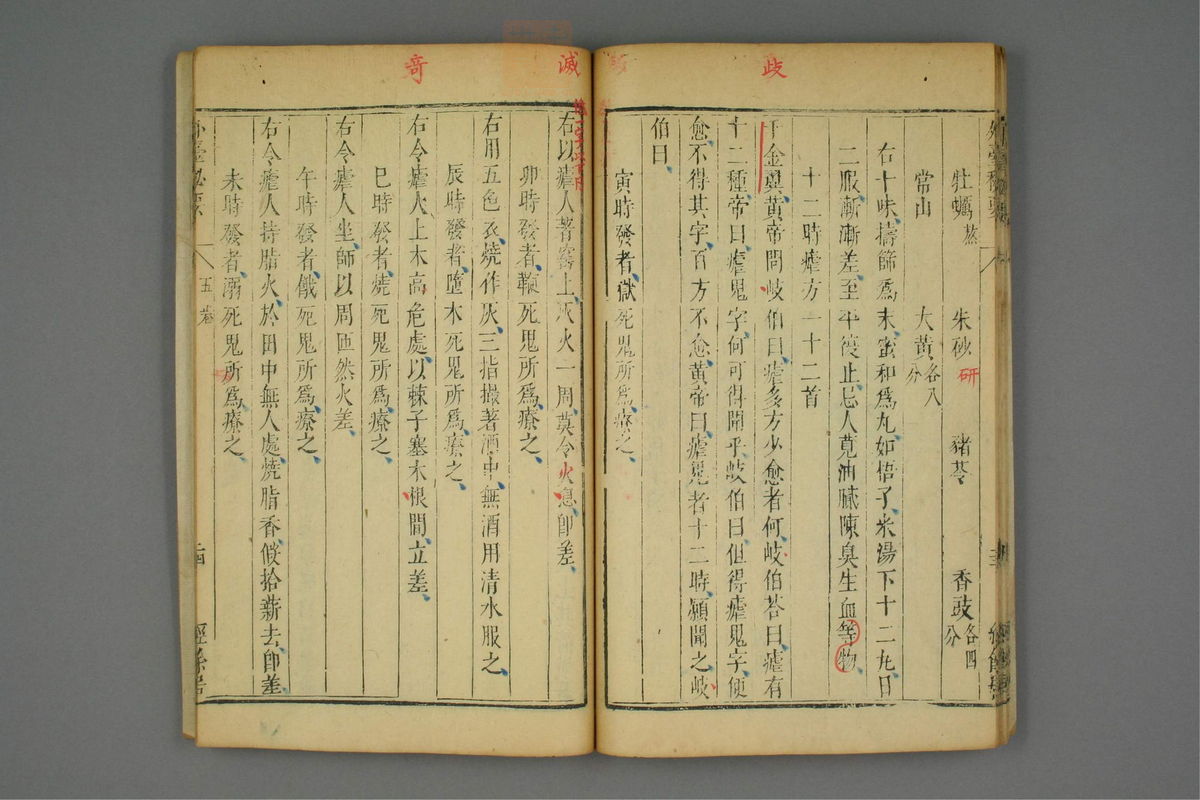 歧
牡蠣蒸 朱砂研 豬苓 香豉各四分
常山 大黃各八分
右十味擣篩爲末蜜和爲丸如梧子米湯下十二丸日
二服漸漸差至平復止忌人莧油膩陳臭生血等物
十二時瘧方一十二首
千金翼黃帝問岐伯曰瘧多方少愈者何岐伯荅曰瘧有
十二種帝曰瘧鬼字何可得聞乎岐伯曰但得瘧鬼字便
愈不得其字百方不愈黃帝曰瘧鬼者十二時願聞之岐
伯曰
寅時發者獄死鬼所爲療之
滅
奇
右以瘧人著窑上灰火一周莫令火息卽差
卯時發者鞭死鬼所爲療之
右用五色衣燒作灰三指撮著酒中無酒用清水服之
辰時發者墮木死鬼所爲療之
右令瘧人上木高危處以棘子塞木根間立差
巳時發者燒死鬼所爲療之
右令瘧人坐師以周匝然火差
午時發者餓死鬼所爲療之
右令瘧人持脂火於田中無人處燒脂香假拾薪去卽差
未時發者溺死鬼所爲療之
外臺秘要 五卷 經餘居